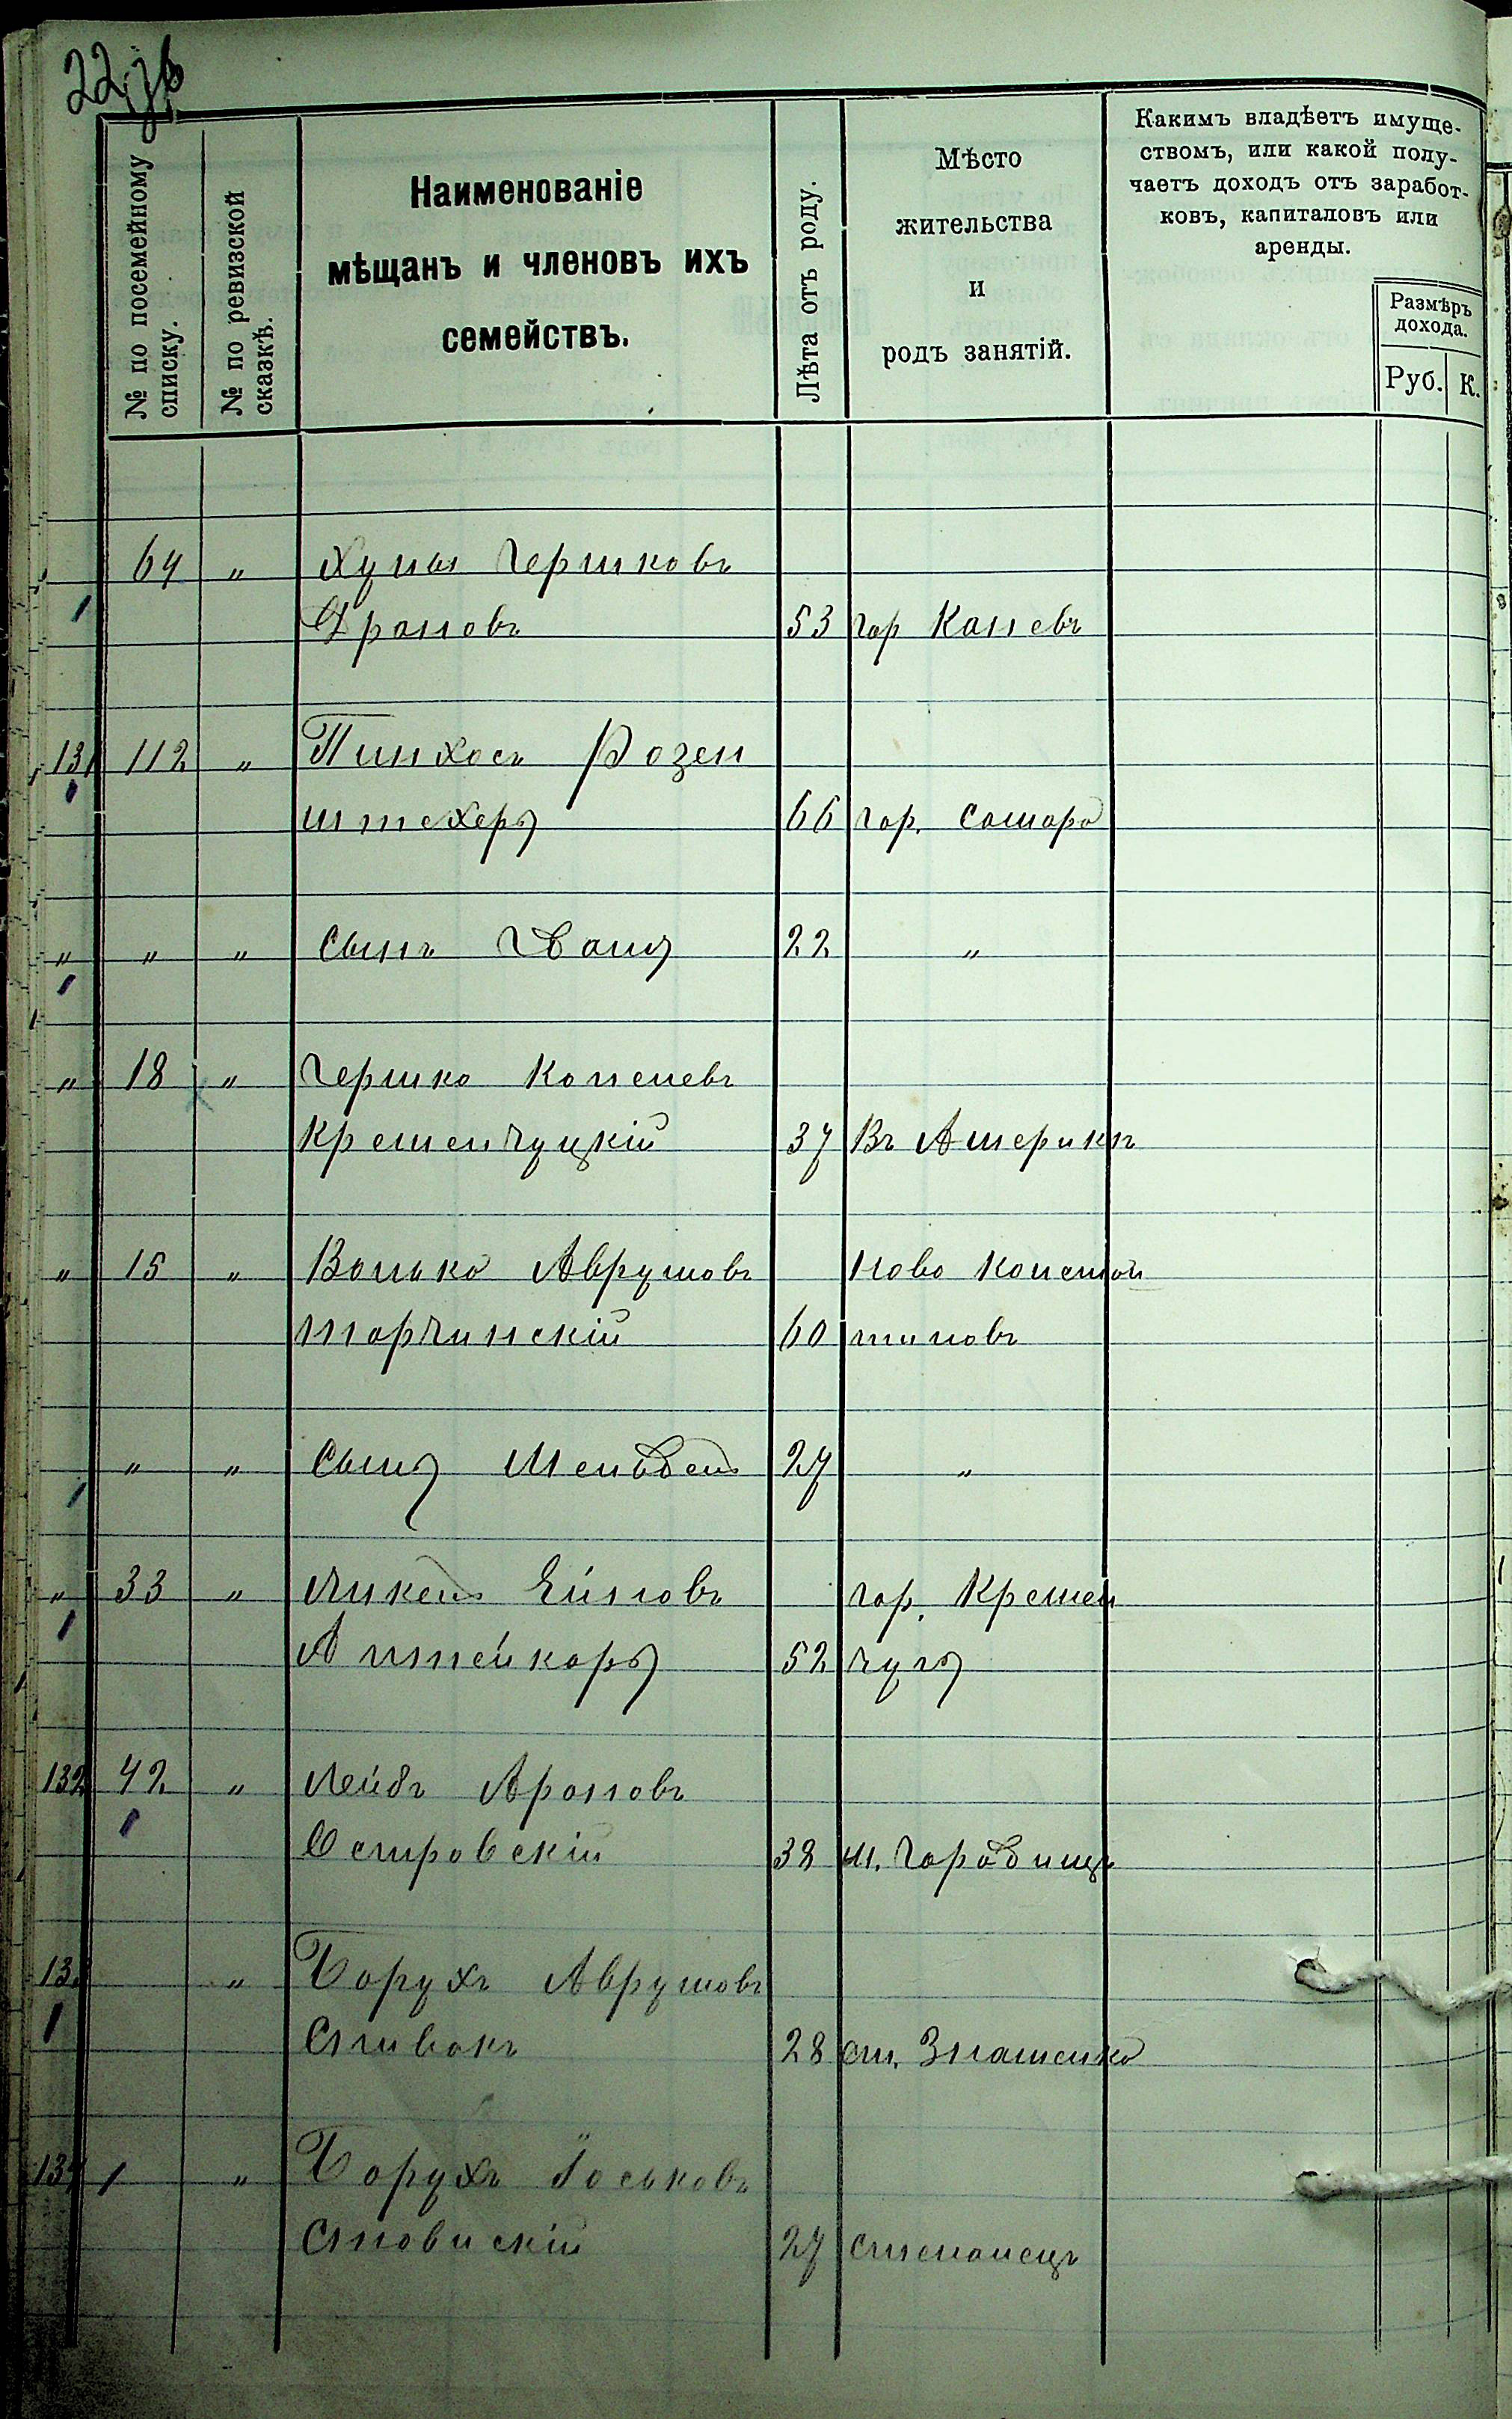 22 зв
№ по посемейному списку.
№ по ревизской сказкѣ.
Наименованіе
мѣщанъ и членовъ ихъ
семействъ.
Лѣта отъ роду.
Мѣсто
жительства
и
родъ занятій.
Какимъ владѣетъ имуще-
ствомъ, или какой полу-
чаетъ доходъ отъ заработ-
ковъ, капиталовъ или
аренды.
Размѣръ
дохода.
Руб. К.
64 " Хуна Гершковъ
53 гор Каневъ
131 112 " Пинхосъ Розен
штехеръ 66 гор. Самара
" " " Сынъ Давидъ 22 "
" 18 " Гершко Копелевъ
Кременчуцкій 37 Въ Америкѣ
" 15 " Волько Аврумовъ Ново Констан
Торчинскій 60 тиновъ
" " Сынъ Мендель 27 "
" 33 " Анкель Ейновъ гор. Кремен
Аптейкаръ 52 чугъ
132 42 " Лейбъ Ароновъ
Островскій 38 м. Городище
13 " Борухъ Аврумовъ
Спивакъ 28 ст. Знаменка
134 " Борухъ Іоськовъ
27 Степанецъ